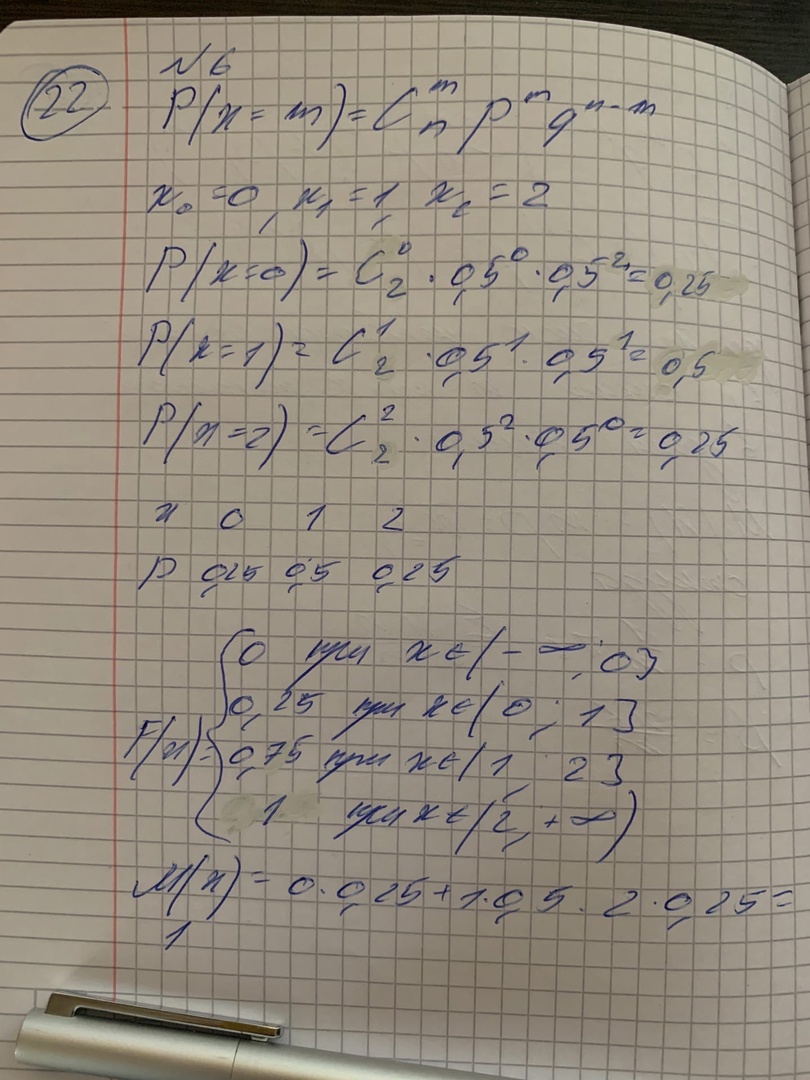 22
№6
P(x = m) = C_n^m p^m q^{n-m}
x₀ = 0, x₁ = 1, x₂ = 2
P(x=0) = C_2^0 · 0,5^0 · 0,5^2 = 0,25
P(x=1) = C_2^1 · 0,5^1 · 0,5^1 = 0,5
P(x=2) = C_2^2 · 0,5^2 · 0,5^0 = 0,25
x 0 1 2
P 0,25 0,5 0,25
0 при x ∈ (-∞; 0]
0,25 при x ∈ (0; 1]
F(x) = { 0,75 при x ∈ (1, 2]
1 при x ∈ (2, +∞)
M(x) = 0·0,25 + 1·0,5 · 2·0,25 =
1